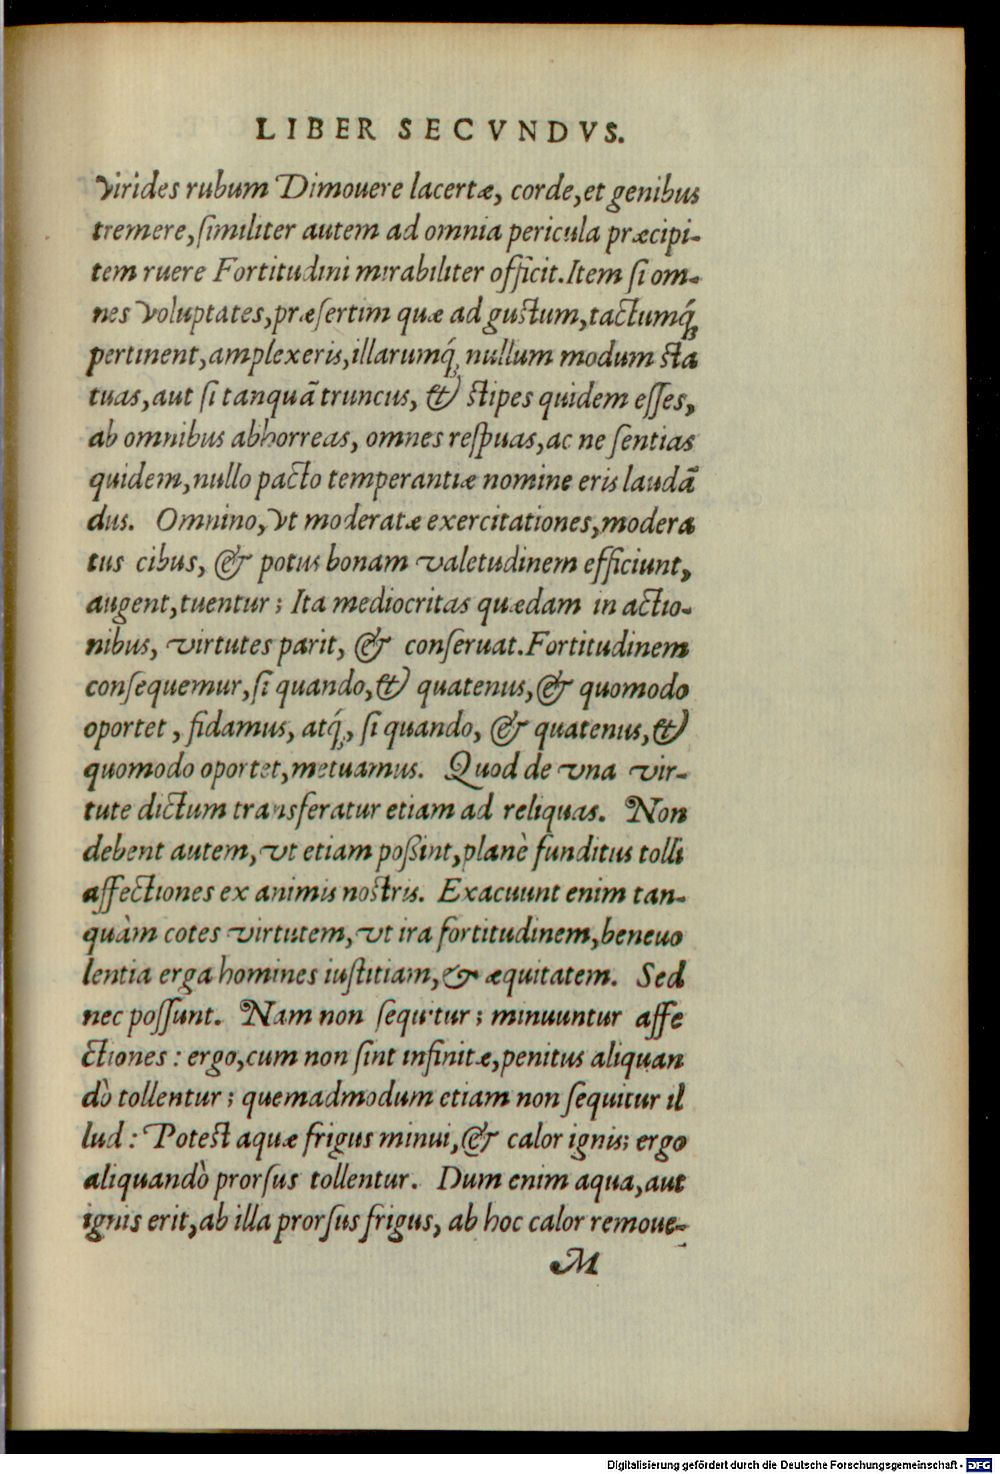 LIBER SECVNDVS.
Virides rubum Dimouere lacertæ, corde, et genibus
tremere, ſimiliter autem ad omnia pericula præcipi-
tem ruere Fortitudini mirabiliter officit. Item ſi om-
nes Voluptates, præſertim quæ ad guſtum, tactumq́
pertinent, amplexeris, illarumq́ nullum modum ſta
tuas, aut ſi tanquā truncus, & ſtipes quidem eſſes,
ab omnibus abhorreas, omnes reſpuas, ac ne ſentias
quidem, nullo pacto temperantiæ nomine eris laudā
dus. Omnino, Vt moderatæ exercitationes, modera
tus cibus, & potus bonam valetudinem efficiunt,
augent, tuentur; Ita mediocritas quædam in actio-
nibus, virtutes parit, & conſeruat. Fortitudinem
conſequemur, ſi quando, & quatenus, & quomodo
oportet, fidamus, atq́, ſi quando, & quatenus, &
quomodo oportet, metuamus. Quod de vna vir-
tute dictum transferatur etiam ad reliquas. Non
debent autem, vt etiam poßint, planè funditus tolli
affectiones ex animis noſtris. Exacuunt enim tan-
quàm cotes virtutem, vt ira fortitudinem, beneuo
lentia erga homines iuſtitiam, & æquitatem. Sed
nec poſſunt. Nam non ſequitur; minuuntur affe
ctiones: ergo, cum non ſint infinitæ, penitus aliquan
dò tollentur; quemadmodum etiam non ſequitur il
lud: Poteſt aquæ frigus minui, & calor ignis; ergo
aliquandò prorſus tollentur. Dum enim aqua, aut
ignis erit, ab illa prorſus frigus, ab hoc calor remoue-
M
Digitalisierung gefördert durch die Deutsche Forschungsgemeinschaft - DFG